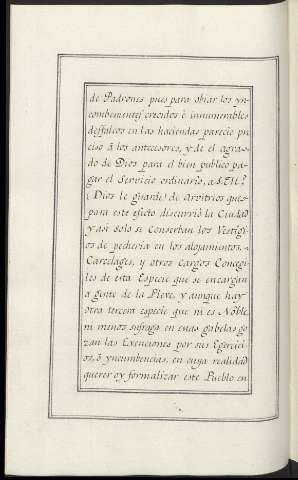 de Padrones pues para obiar los yn-
combenientes crecidos è innumerables
desfalcos en las haciendas parecio pre
ciso â los antecesores, y de el agra-
do de Dios para el bien publico pa-
gar el Servicio ordinario, a S.M.ᵈ
(Dios le guarde) de Arvitrios que
para este efecto discurriò la Ciudad
y asi solo si conserban los Vestigi-
os de pecheria en los alojamientos,
Carcelages, y otros Cargos Concegi-
les de esta Especie que se encargan
a gente de la Pleve, y aunque hay
otra tercera especie que ni es Noble,
ni menos sufraga en estas gabelas go
zan las Exenciones por sus Egercici-
os, ô yncumbencias, en cuya realidad
querer oy formalizar este Pueblo en